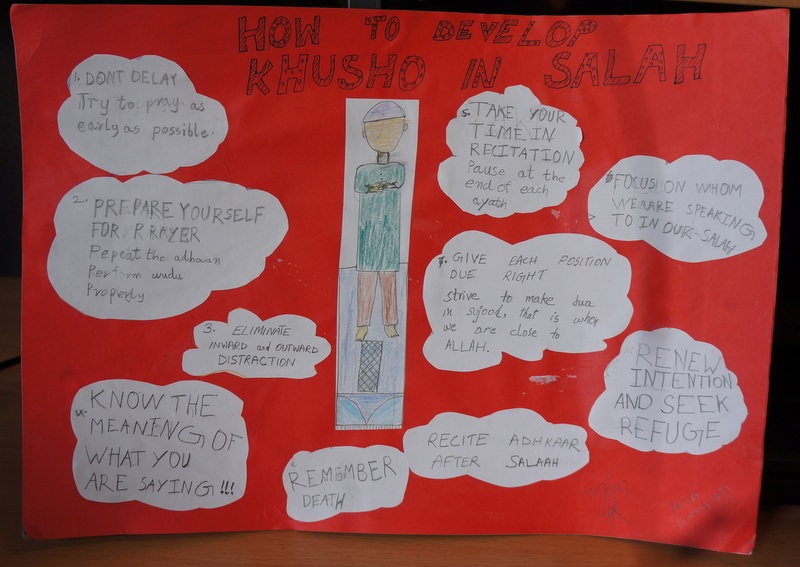 HOW TO DEVELOP
KHUSHO IN SALAH
1. DONT DELAY
Try to pray as
early as possible.
2 PREPARE YOURSELF
FOR PRAYER
Repeat the adhaan
Perform wudu
Properly
3. ELIMINATE
INWARD and OUTWARD
DISTRACTION
4. KNOW THE
MEANING OF
WHAT YOU
ARE SAYING!!!
REMEMBER
DEATH
5. TAKE YOUR
TIME IN
RECITATION
Pause at the
end of each
ayah
FOCUS ON WHOM
WEAARE SPEAKING
TO IN OUR-SALAH
7. GIVE EACH POSITION
DUE RIGHT
strive to make dua
in sujood, that is when
we are close to
ALLAH.
RENEW
INTENTION
AND SEEK
REFUGE
RECITE ADHKAAR
AFTER SALAAH